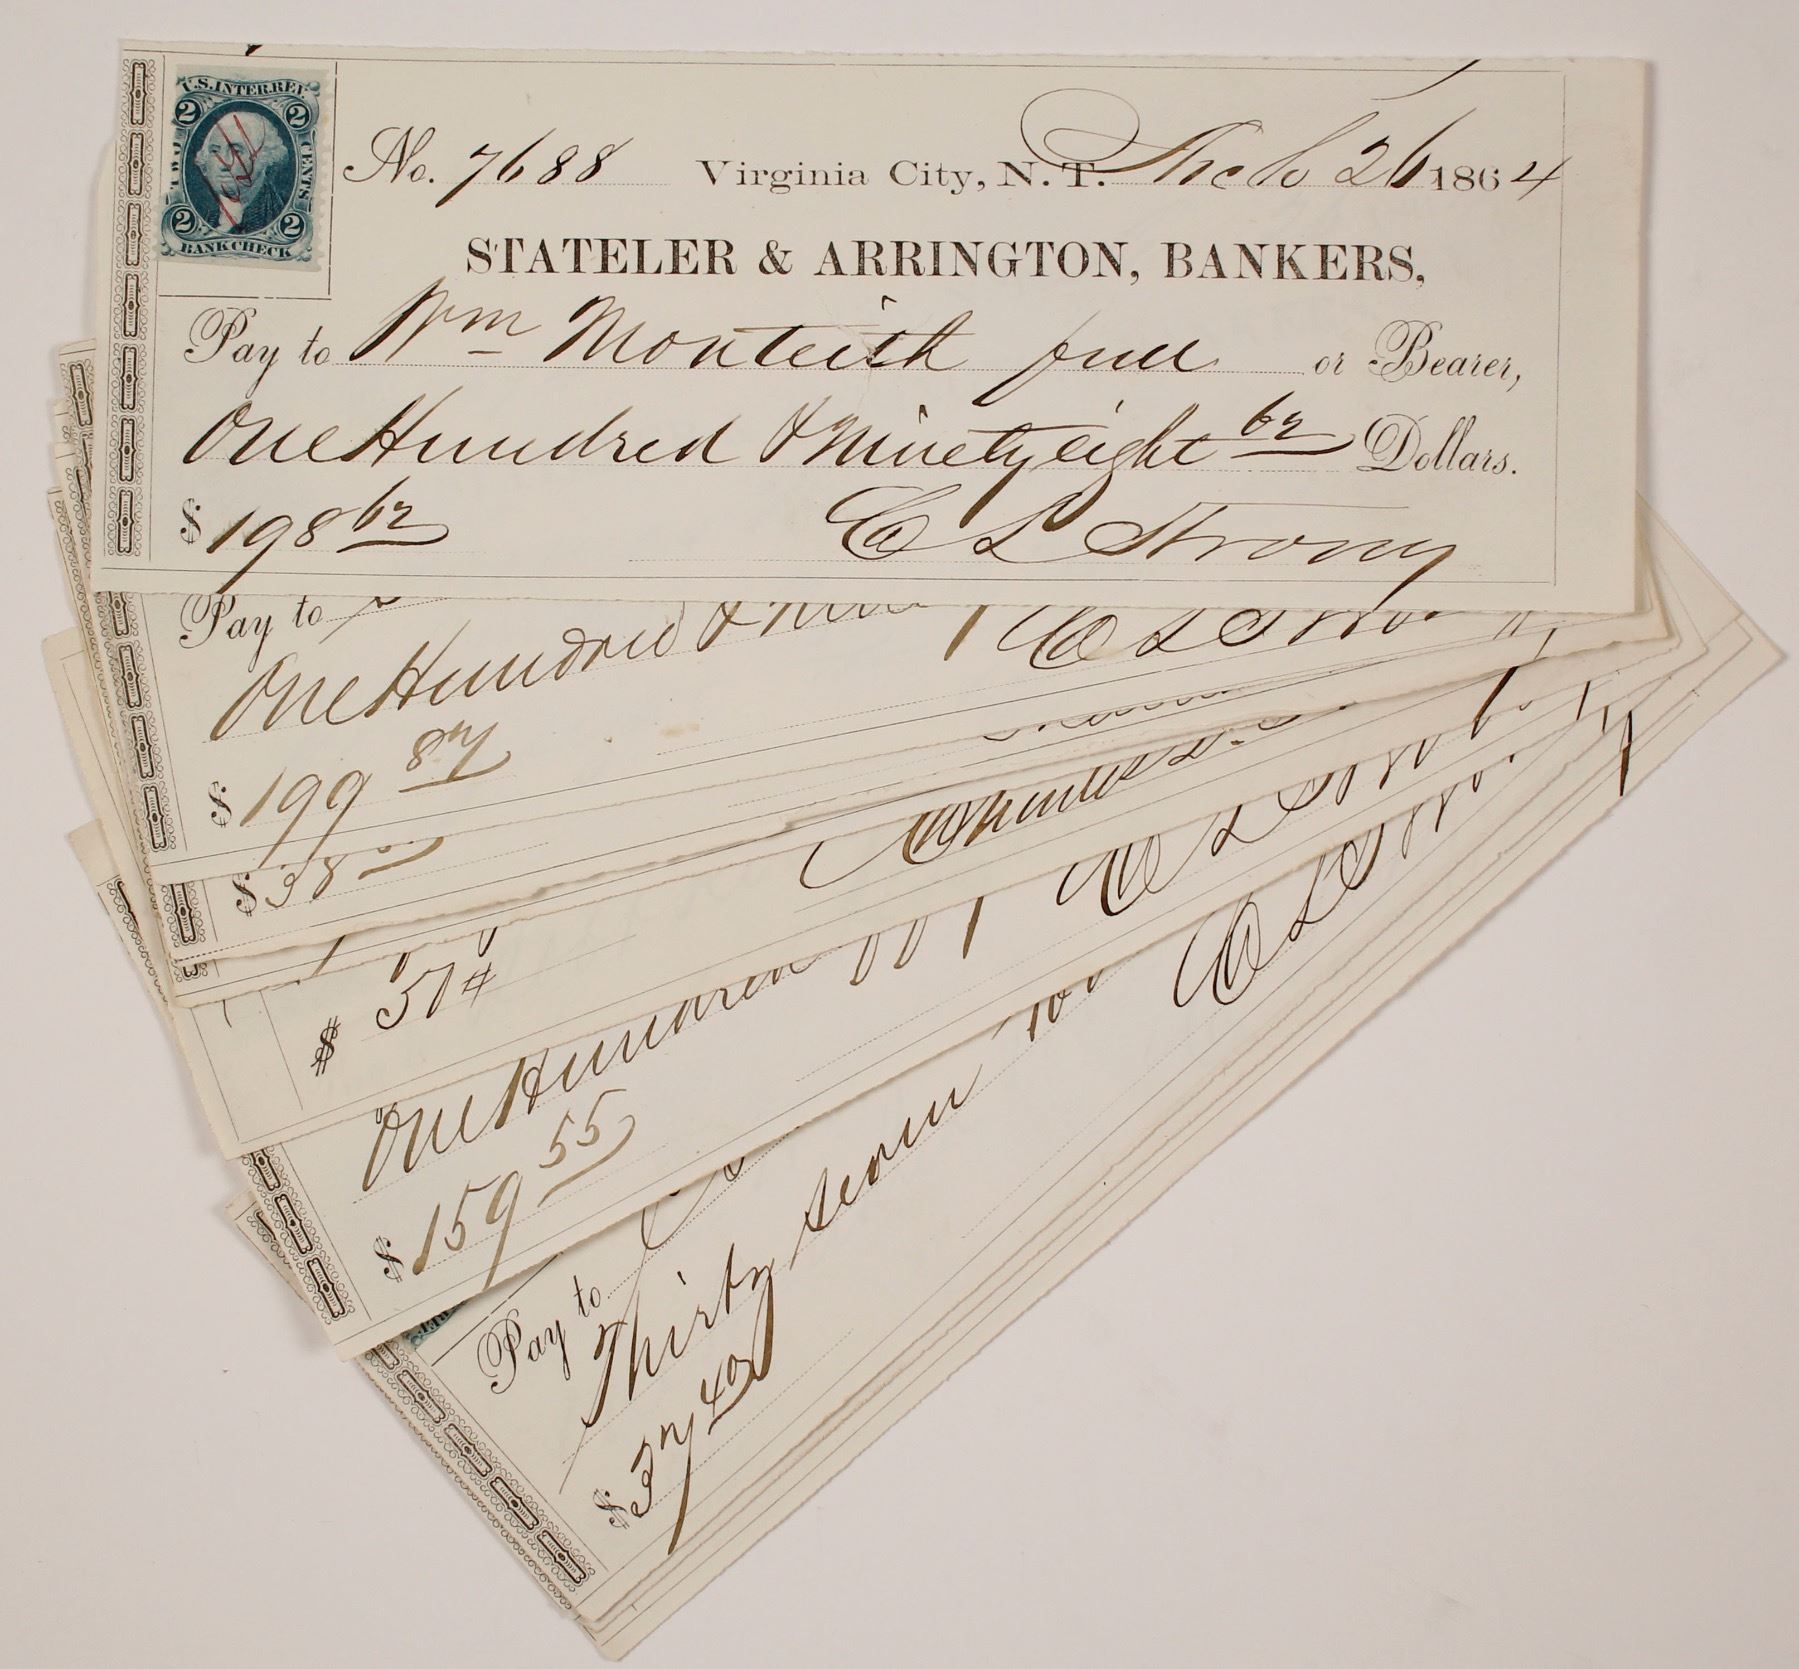 U.S. INTER. REV.
2 2
TWO CENTS
2 2
BANK CHECK
No. 7688 Virginia City, N. T. Feb 26 1864
STATELER & ARRINGTON, BANKERS,
Pay to Wm Monteith or Bearer,
One Hundred & Ninety eight 62 Dollars.
$ 198 62
C L Strong
Pay to
One Hundred &
C L Stro
$ 199 87
$ 38
Charles
$ 574
One Hundred
C L Stro
$ 159 55
Pay to
Thirty seven
C L Stro
$ 37 40